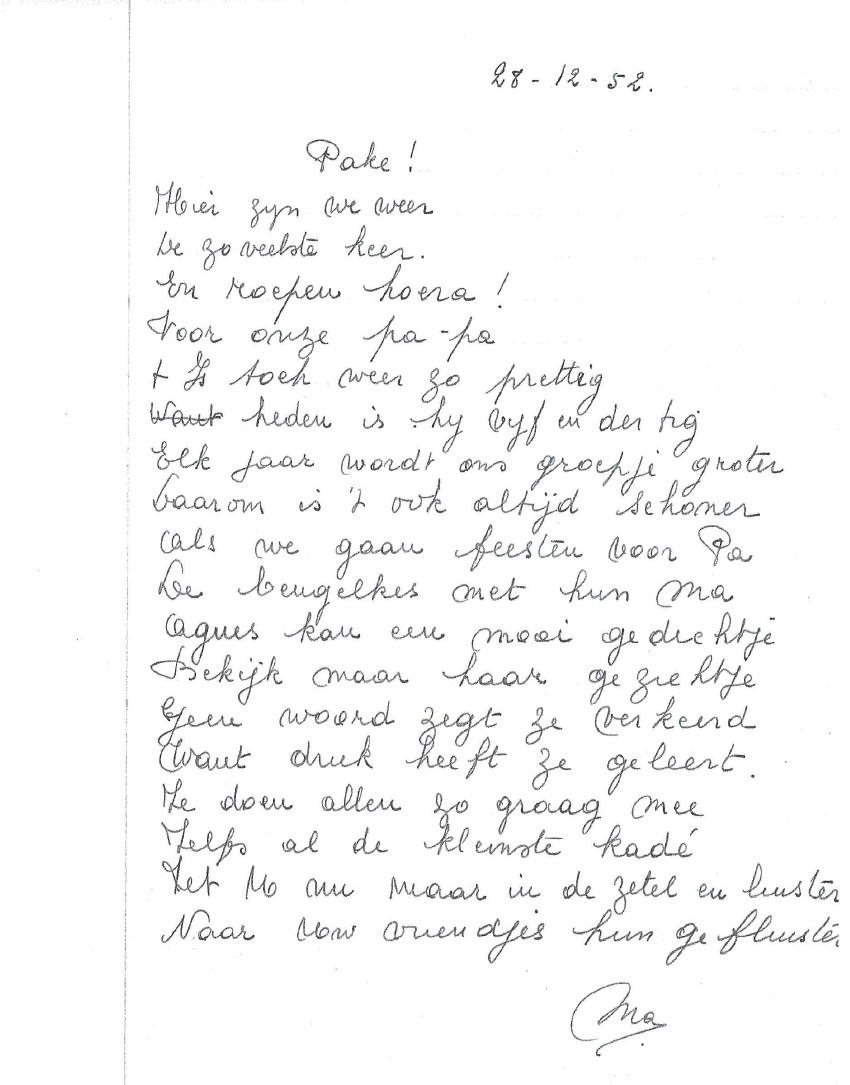 28-12-52.
Pake!
Hier zyn we weer
De zoveelste keer.
En roepen hoera!
Voor onze pa-pa
t Is toch weer zo prettig
Want heden is hy vyf en dertig
Elk jaar wordt ons groepje groter
Daarom is 't ook altijd schoner
Als we gaan feesten voor Pa
De beugelkes met hun Ma
Agnes kan een mooi gedichtje
Bekijk maar haar gezichtje
Geen woord zegt ze verkeerd
Want druk heeft ze geleert.
Ze doen allen zo graag mee
Zelfs al de kleinste kadé
Zet U nu maar in de zetel en luister
Naar Uw vriendjes hun gefluister
Ma